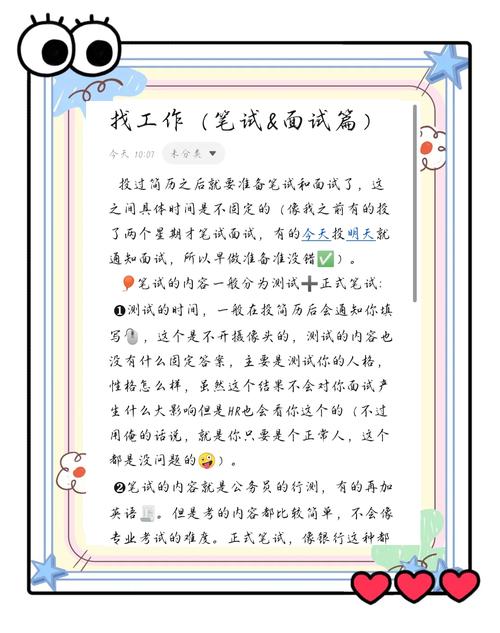 找工作（笔试&面试篇）
今天 10:07 未分类
投过简历之后就要准备笔试和面试了，这
之间具体时间是不固定的（像我之前有的投
了两个星期才笔试面试，有的今天投明天就
通知面试，所以早做准备准没错✅）。
🎈笔试的内容一般分为测试➕正式笔试：
❶测试的时间，一般在投简历后会通知你填
写🖱️，这个是不开摄像头的，测试的内容也
没有什么固定答案，主要是测试你的人格，
性格怎么样，虽然这个结果不会对你面试产
生什么大影响但是HR也会看你这个的（不过
用俺的话说，就是你只要是个正常人，这个
都是没问题的🤪）。
❷笔试的内容就是公务员的行测，有的再加
英语📜。但是考的内容都比较简单，不会像
专业考试的难度。正式笔试，像银行这种都